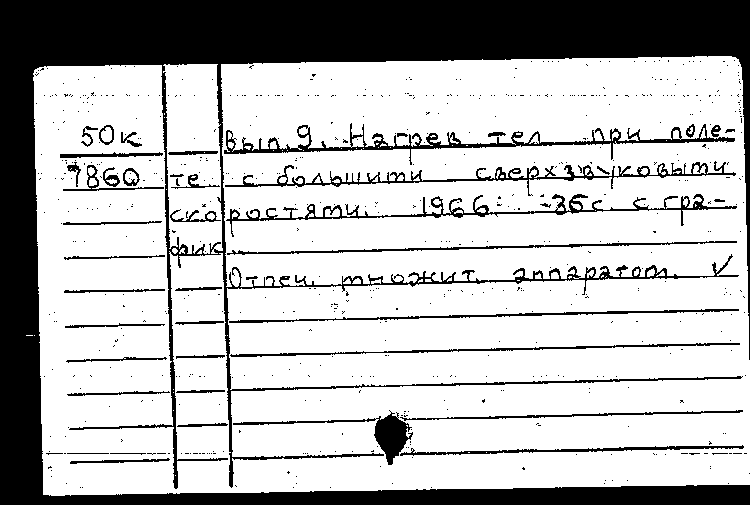 50к Вып. 9. Нагрев тел при поле-
7860 те с большими сверхзвуковыми
скоростями. 1966. -36с. с гра-
фик.
Отпеч. множит. аппаратом. ✓